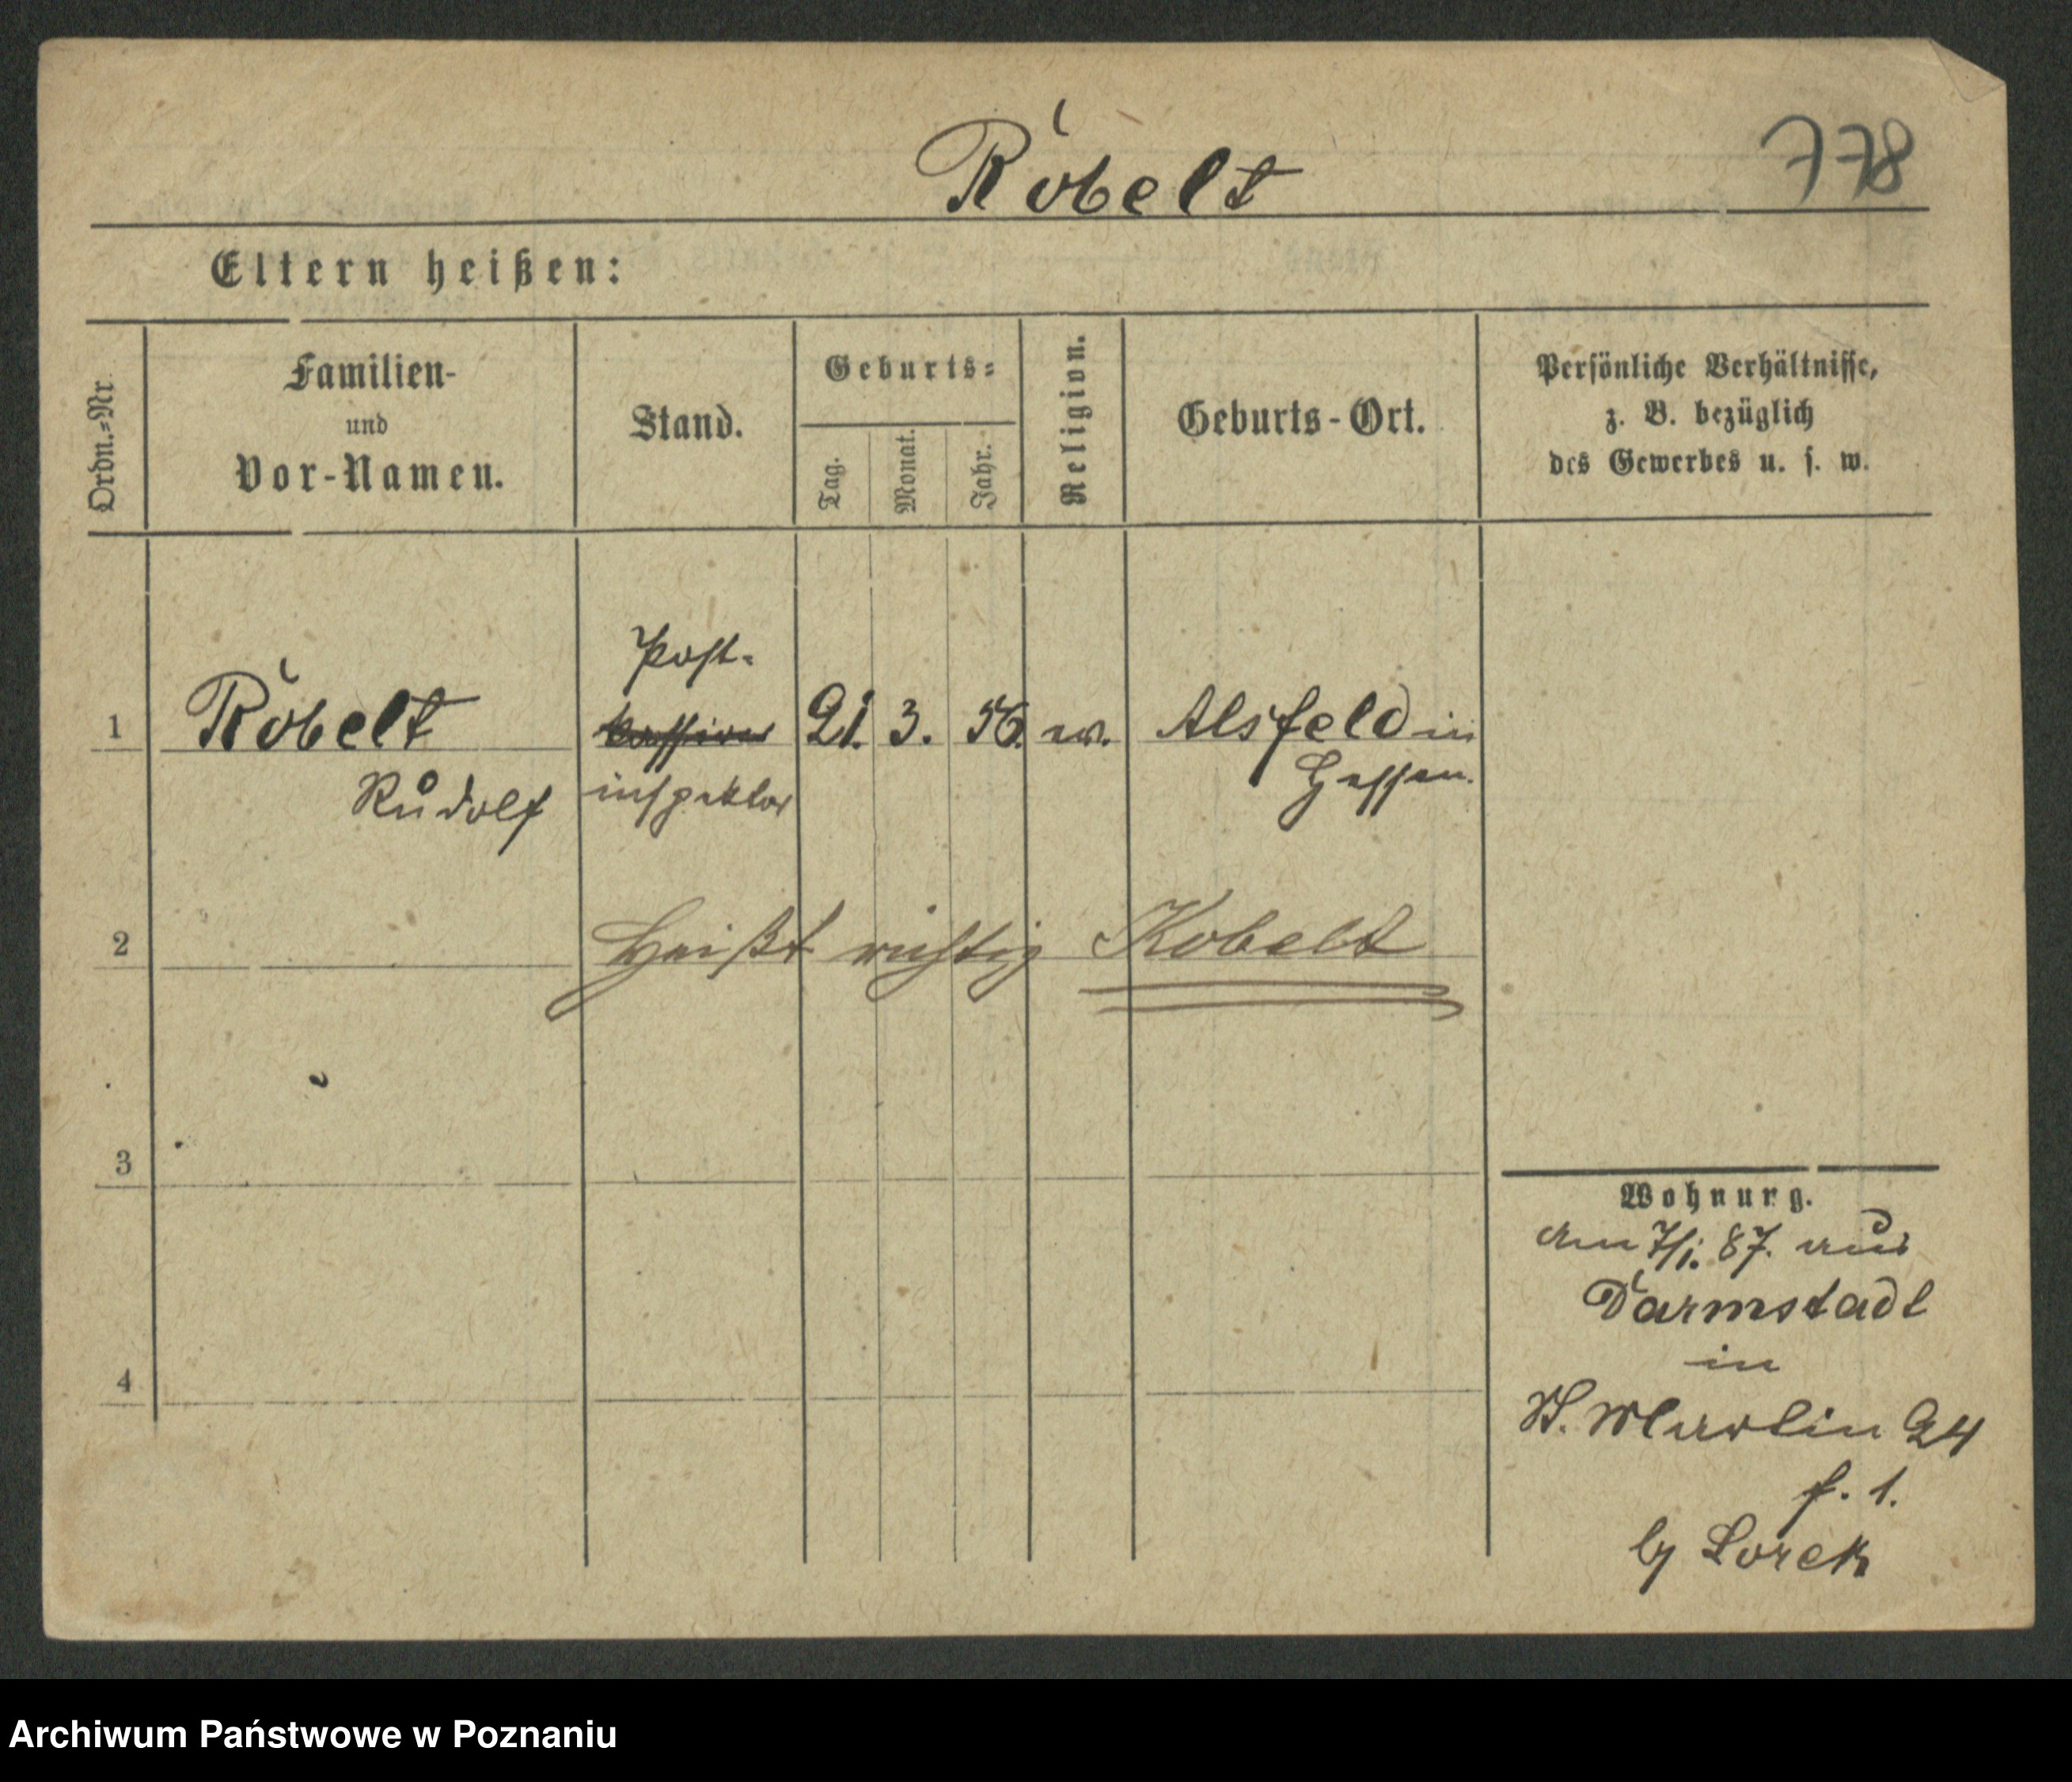 Robelt
778
Eltern heißen:
Ordn.=Nr.
Familien-
und
Vor-Namen.
Stand.
Geburts=
Tag.
Monat.
Jahr.
Religion.
Geburts-Ort.
Persönliche Verhältnisse,
z. B. bezüglich
des Gewerbes u. s. w.
1
Robelt
Rudolf
Post-
inspektor
21. 3. 56.
Alsfeld in
Hessen.
2
Heißt richtig Kobelt
3
4
Wohnung.
am 7/1. 87. aus
Darmstadt
in
St. Martin 24
by Lorek
Archiwum Państwowe w Poznaniu